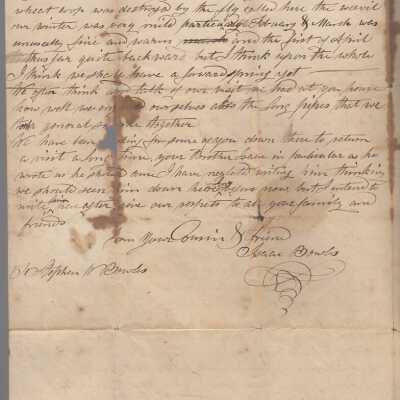 wheat crop was destroyed by the fly called here the weavil
our winter was very mild particularly February & March was
unusually fine and warm and the first of April
thus far quite backward but I think upon the whole
I think we shall have a forward spring yet
We often think and talk of our visit we had at your house
how well we ourselves the long pipes that we
general together
We have been for some of you down here to return
a visit a long time, your Brother Isaac in particular as he
wrote as he should and I have neglected writing him thinking
we should seen him down here now but I intend to
write him here after give our respects to all your family and
friends
from Your Cousin & friend
Isaac Bowles
To Stephen W Bowles